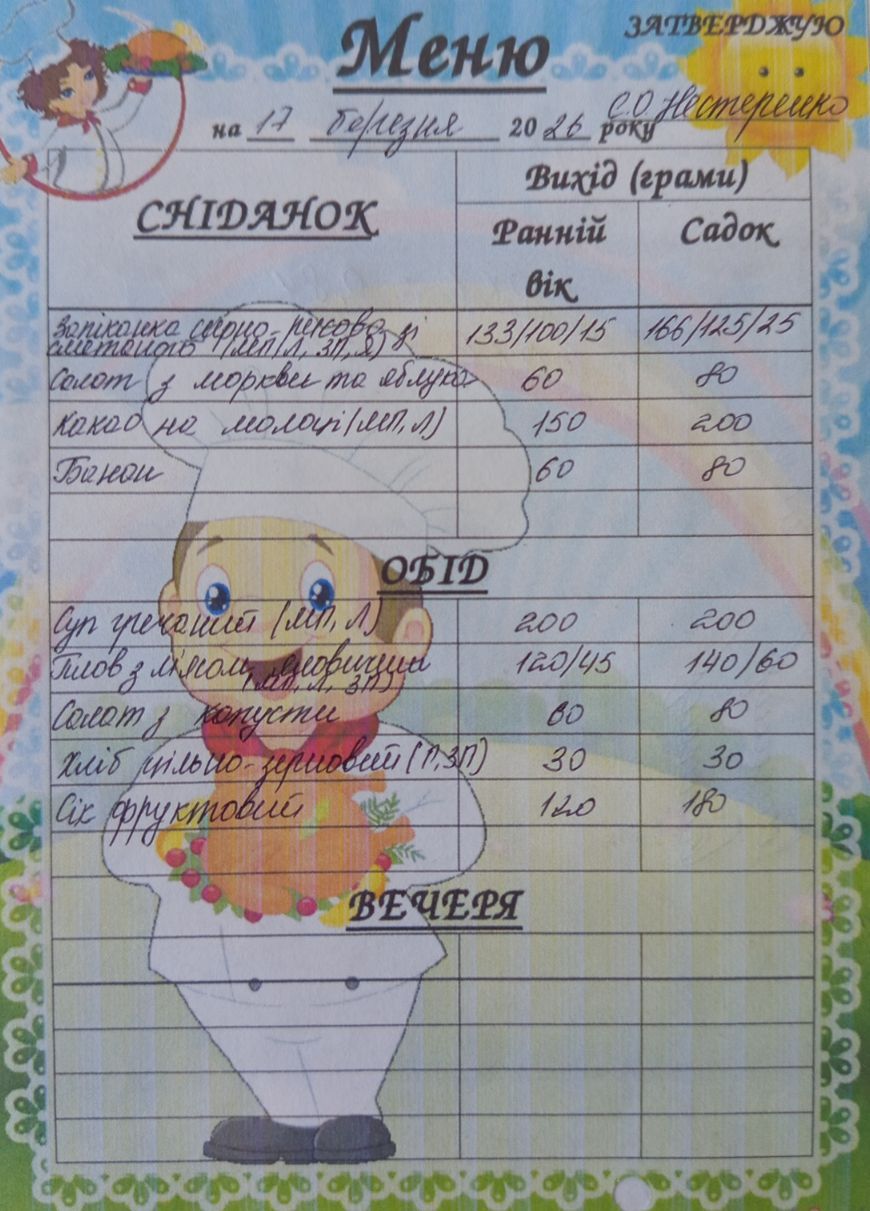 ЗАТВЕРДЖУЮ
Меню
С.О Нестеренко
на 17 березня 2026 року
СНІДАНОК
Вихід (грами)
Ранній вік
Садок
Запіканка сирно-рисова зі
сметаною (МП/Л, ЗП, Я) 133/100/15 166/125/25
Салат з моркви та яблука 60 80
Какао на молоці (МП, Л) 150 200
Банан 60 80
ОБІД
Суп гречаний (МП, Л) 200 200
Плов з м'ясом яловичини
(МП, Л, ЗП) 120/45 140/60
Салат з капусти 60 80
Хліб цільно-зерновий (П, ЗП) 30 30
Сік фруктовий 120 180
ВЕЧЕРЯ